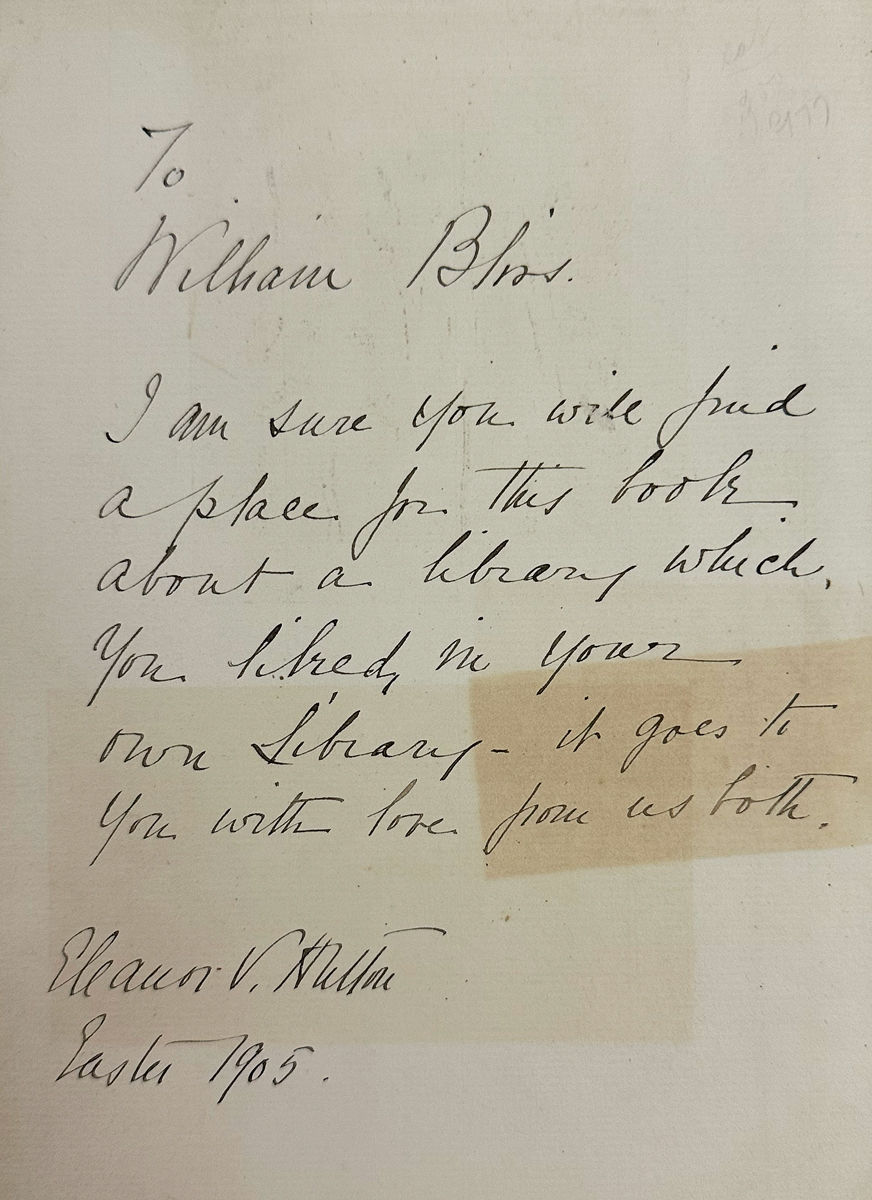 To
William Bliss.
I am sure you will find
a place for this book
about a library which,
You liked, in your
own Library - it goes to
You with love from us both.
Eleanor V. Hutton
Easter 1905.